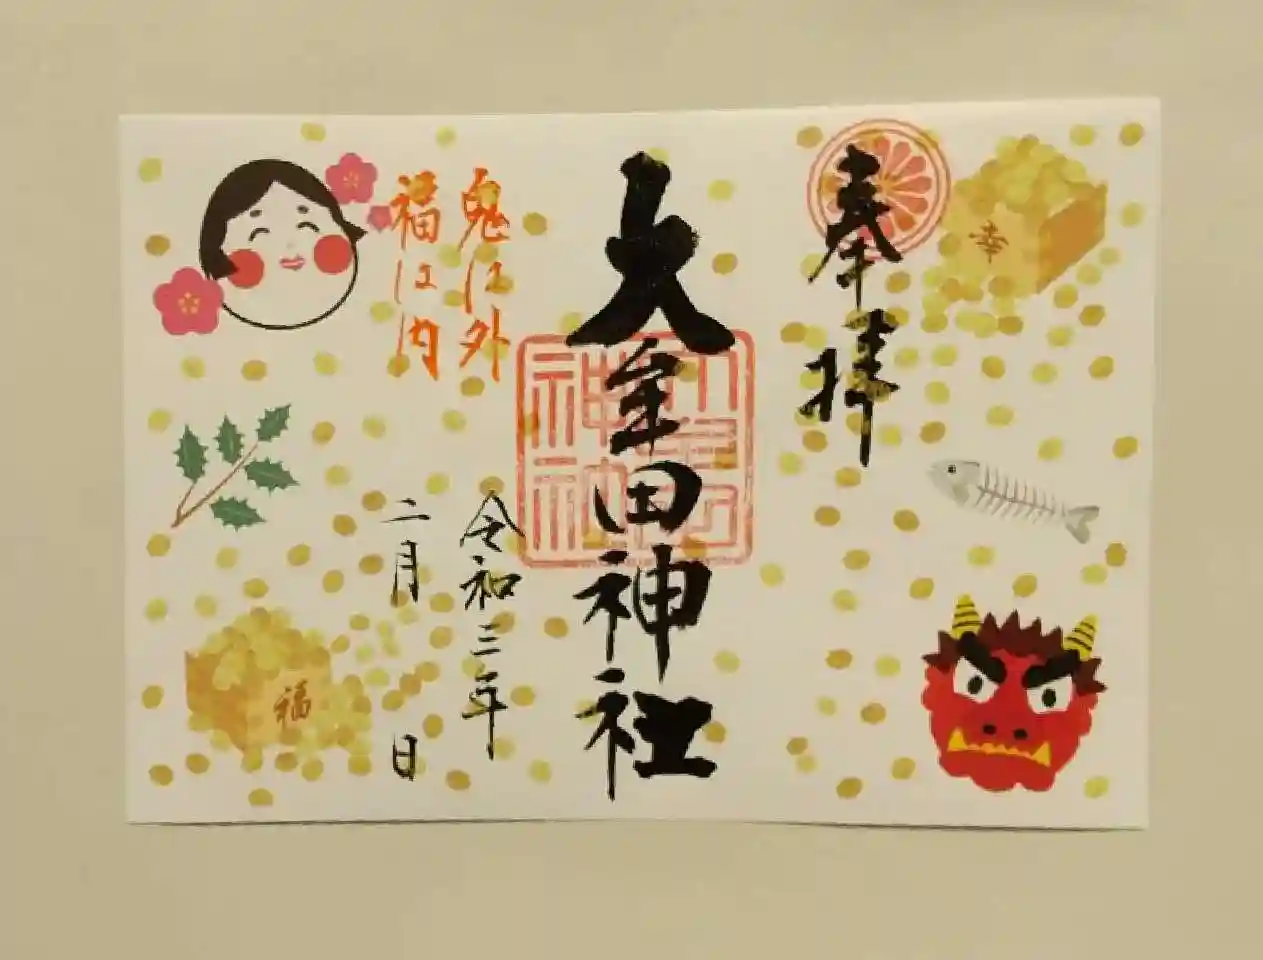 奉拝
幸
大牟田神社
大牟田
神社
鬼は外
福は内
令和三年
二月 日
福